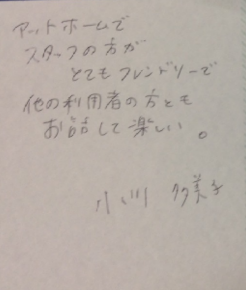 アットホームで
スタッフの方が
とてもフレンドリーで
他の利用者の方とも
お話して楽しい。
小川 多美子